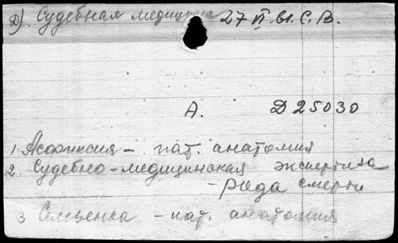 Д). Судебная медицина 27 VI 61. С. В.
А. Д 25030
1. Асфиксия - пат. анатомия
2. Судебно-медицинская экспертиза
- рода смерти
3 Селезенка - пат. анатомия